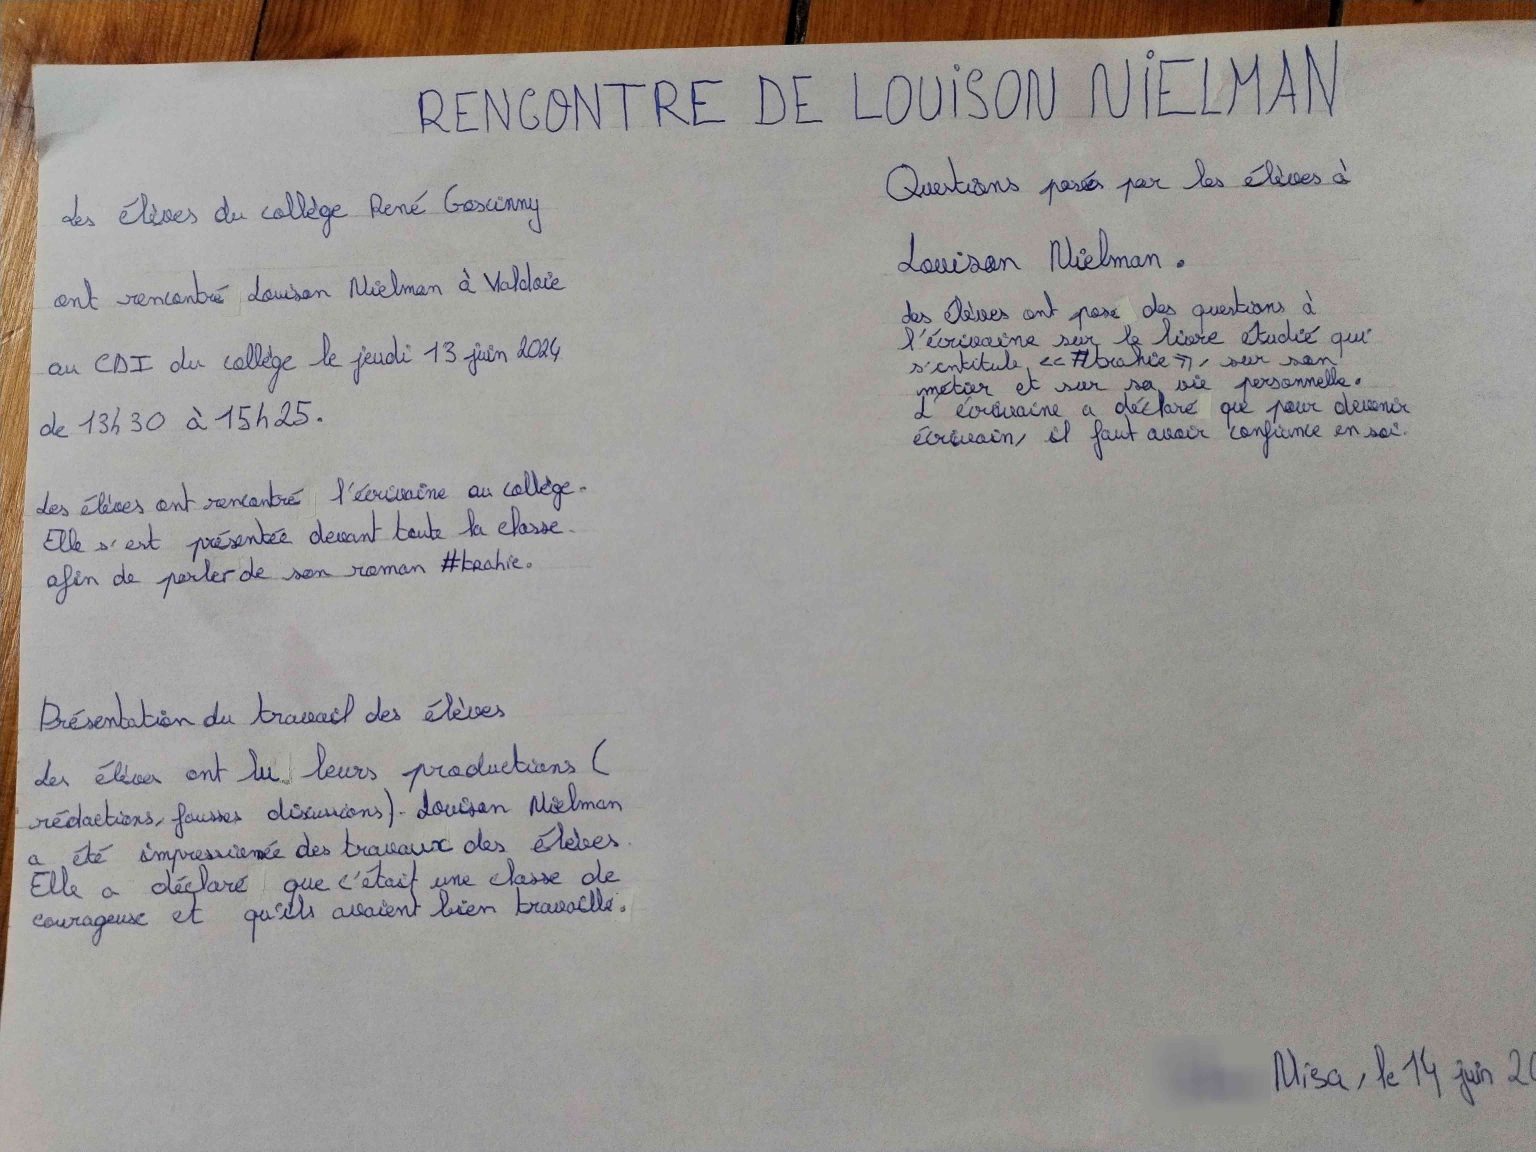 RENCONTRE DE LOUISON NIELMAN
Les élèves du collège René Goscinny
ont rencontré Louison Nielman à Valdoie
au CDI du collège le jeudi 13 juin 2024
de 13h30 à 15h25.
Les élèves ont rencontré l'écrivaine au collège.
Elle s'est présentée devant toute la classe
afin de parler de son roman #trahie.
Présentation du travail des élèves
Les élèves ont lu leurs productions (
rédactions, fausses discussions). Louison Nielman
a été impressionée des travaux des élèves.
Elle a déclaré que c'était une classe de
courageux et qu'ils avaient bien travaillé.
Questions posés par les élèves à
Louison Nielman.
Les élèves ont posé des questions à
l'écrivaine sur le livre étudié qui
s'intitule << #trahie >>, sur son
métier et sur sa vie personnelle.
L'écrivaine a déclaré que pour devenir
écrivain, il faut avoir confiance en soi.
Misa, le 14 juin 20